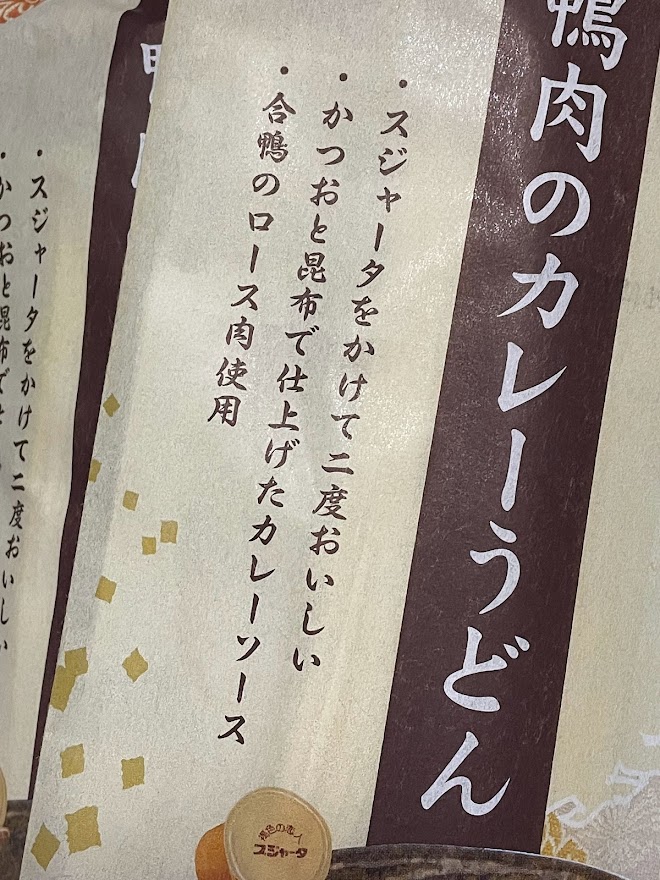 鴨肉のカレーうどん
・スジャータをかけて二度おいしい
・かつおと昆布で仕上げたカレーソース
・合鴨のロース肉使用
褐色の恋人
スジャータ
・スジャータをかけて二度おいしい
・かつおと昆布で